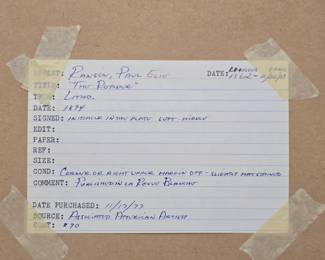 ARTIST: RANSON, PAUL ELIE DATE:
TITLE: "THE READER"
TYPE: LITHO.
DATE: 1894
SIGNED: INITIALED IN THE PLATE LEFT-MIDDLE
EDIT:
PAPER:
REF:
SIZE:
COND: CORNER OF RIGHT UPPER MARGIN OFF - SLIGHTLY MAT STAINED
COMMENT: PUBLISHED IN LA REVUE BLANCHE
DATE PURCHASED: 11/17/77
SOURCE: ASSOCIATED AMERICAN ARTISTS
COST: $70